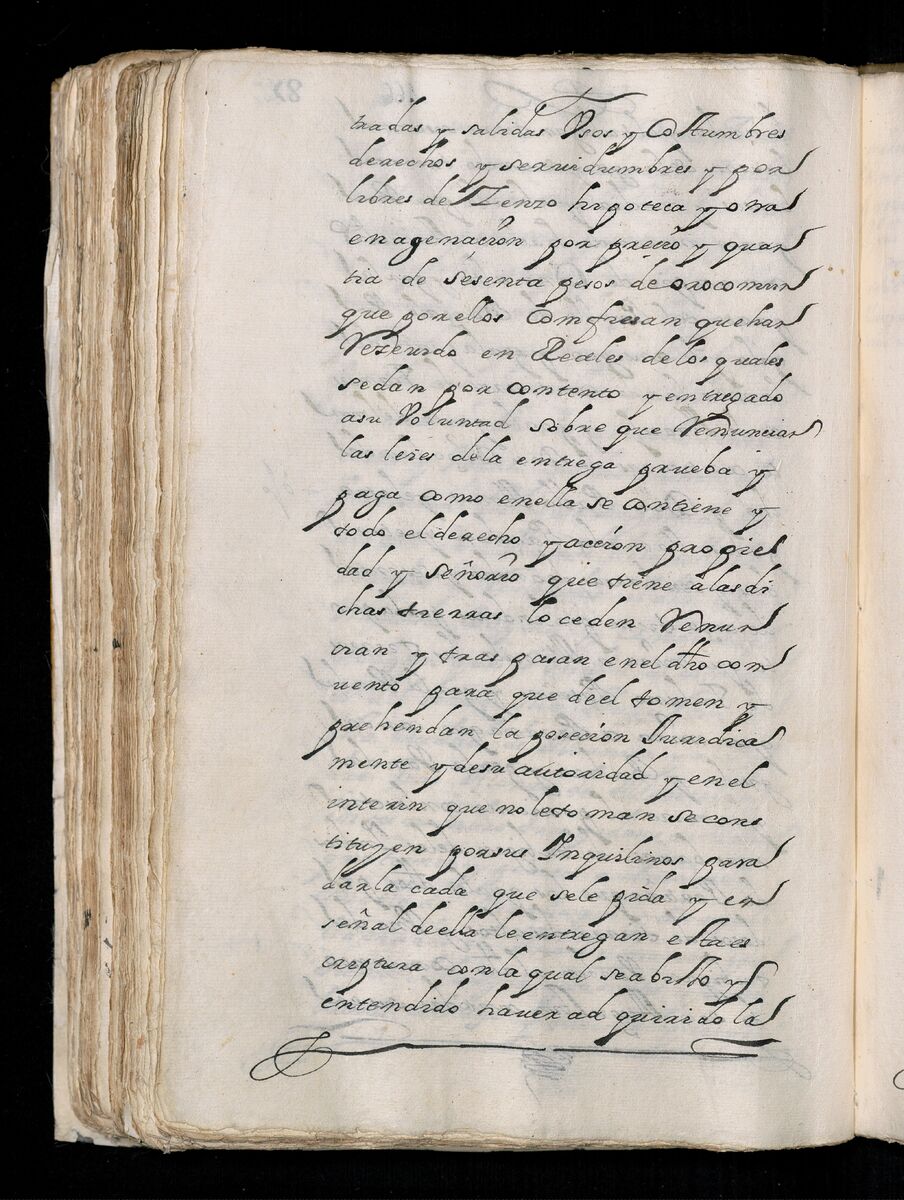 tradas y salidas Vsos y Costumbres
derechos y seruidumbres y por
libres de Zenzo hipoteca y otra
enagenacion por precio y quan
tia de sesenta pesos de oro comun
que por ellos Comfiesan que han
Rezeuido en Reales de los quales
sedan por contento y entregado
asu Voluntad sobre que Renuncian
las leies dela entrega prueba y
paga como enella se contiene y
todo el derecho y accion propie
dad y señorio que tiene alasdi
chas tierras lo ceden Renun
cian y tras pasan enel dho con
uento para que deel tomen y
prehendan la posecion Juridica
mente y desu autoridad y enel
interin que noletoman se cons
tituyen porsus Inquilinos para
darla cada que sele pida y en
señal deella le entregan esta es
criptura conla qual sea bisto y
entendido hauer ad quirido la